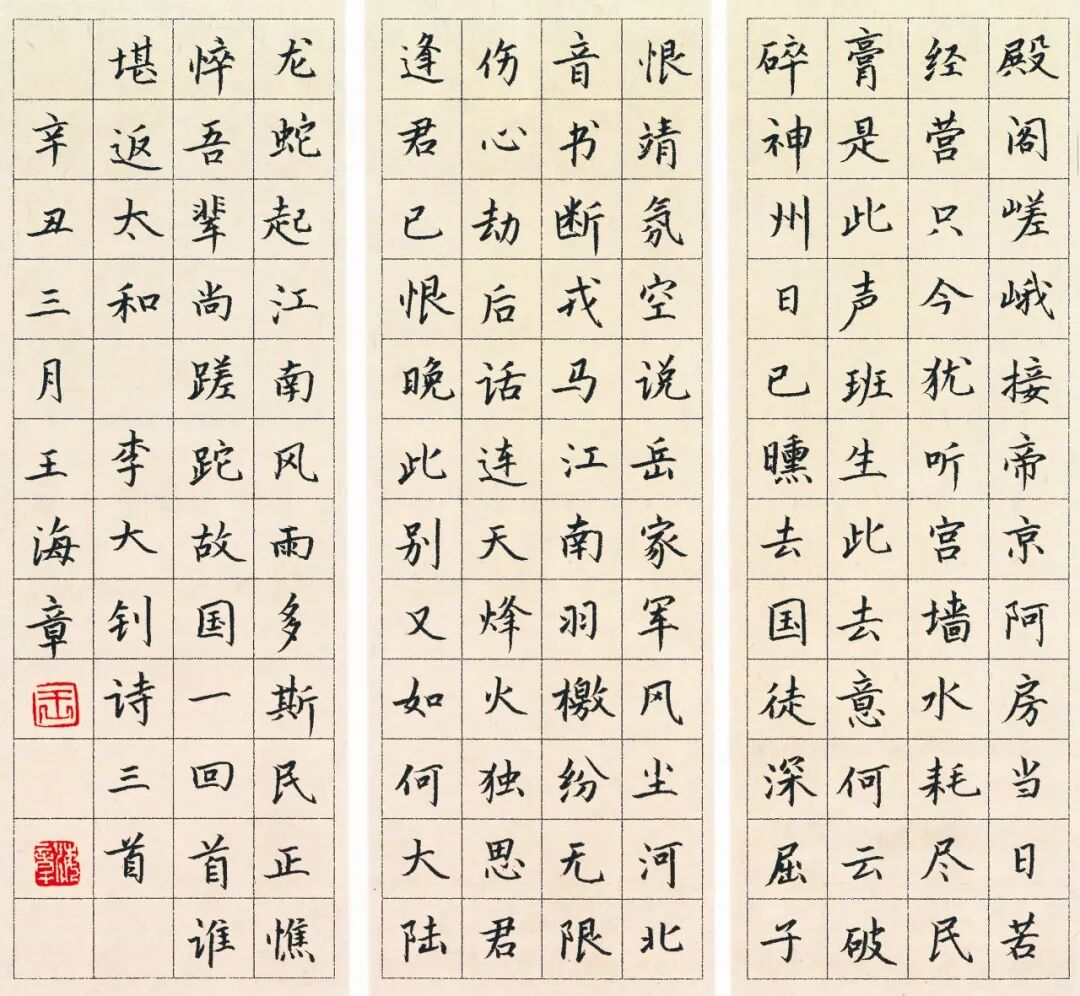 殿阁嵯峨接帝京阿房当日苦
经营只今犹听宫墙水耗尽民
膏是此声班生此去意何云破
碎神州日已曛去国徒深屈子
恨靖氛空说岳家军风尘河北
音书断戎马江南羽檄纷无限
伤心劫后话连天烽火独思君
逢君已恨晚此别又如何大陆
龙蛇起江南风雨多斯民正憔
悴吾辈尚蹉跎故国一回首谁
堪返太和 李大钊诗三首
辛丑三月王海章
王
海章